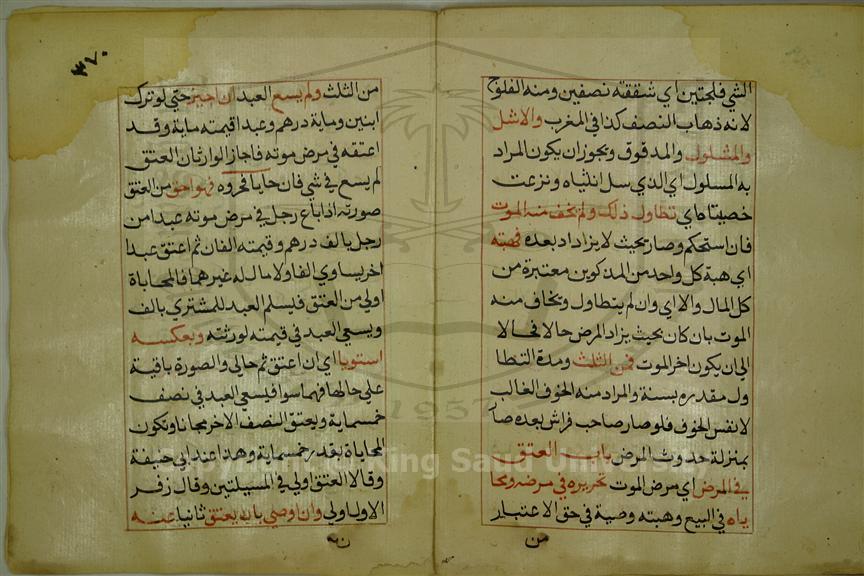 الشي فلجتين اي شققته نصفين ومنه الفلوج
لانه ذهاب النصف كذا في المغرب والاشل
والمشلول والمدقوق ويجوز ان يكون المراد
به المسلول اي الذي سل انثياه ونزعت
خصيتاه اي تطاول ذلك ولم يخف منه الموت
فان استحكم وصار بحيث لا يزداد بعده فهبته
اي هبة كل واحد من المذكوين معتبرة من
كل المال والا اي وان لم يتطاول ويخاف منه
الموت بان كان بحيث يزاد المرض حالا فحالا
الي ان يكون اخر الموت فمن الثلث ومدة التطا
ول مقدره بسنة والمراد منه الخوف الغالب
لا نفس الخوف فلو صار صاحب فراش بعده صار
بمنزلة حدوث المرض باب العتق
في المرض اي مرض الموت تحريره في مرضه ومحا
باه في البيع وهبته وصية في حق الاعتبار
من
٣٧٠
من الثلث ولم يسع العبد ان اجيز حتي لو ترك
ابنين وماية درهم وعبدا قيمته ماية وقد
اعتقه في مرض موته فاجاز الوارثان العتق
لم يسع في شي فان حابا فحرره فهو احق من العتق
صورته اذا باع رجل في مرض موته عبدا من
رجل بالف درهم وقيمته الفان ثم اعتق عبدا
اخر يساوي الفا ولا مال له غيرهما فالمحاباة
اولي من العتق فيسلم العبد للمشتري بالف
ويسعي العبد في قيمته لورثته وبعكسه
استويا اي ان اعتق ثم حابي والصورة باقية
علي حالها فهما سوا فيسعي العبد في نصف
خمسماية ويعتق النصف الاخر مجانا وتكون
المحاباة بقدر خمسماية وهذا عند ابي حنيفة
وقالا العتق اولي في المسيلتين وقال زفر
الاول اولي وان اوصي بان يعتق ثانيا عنه
Copyright © King Saud University
1957